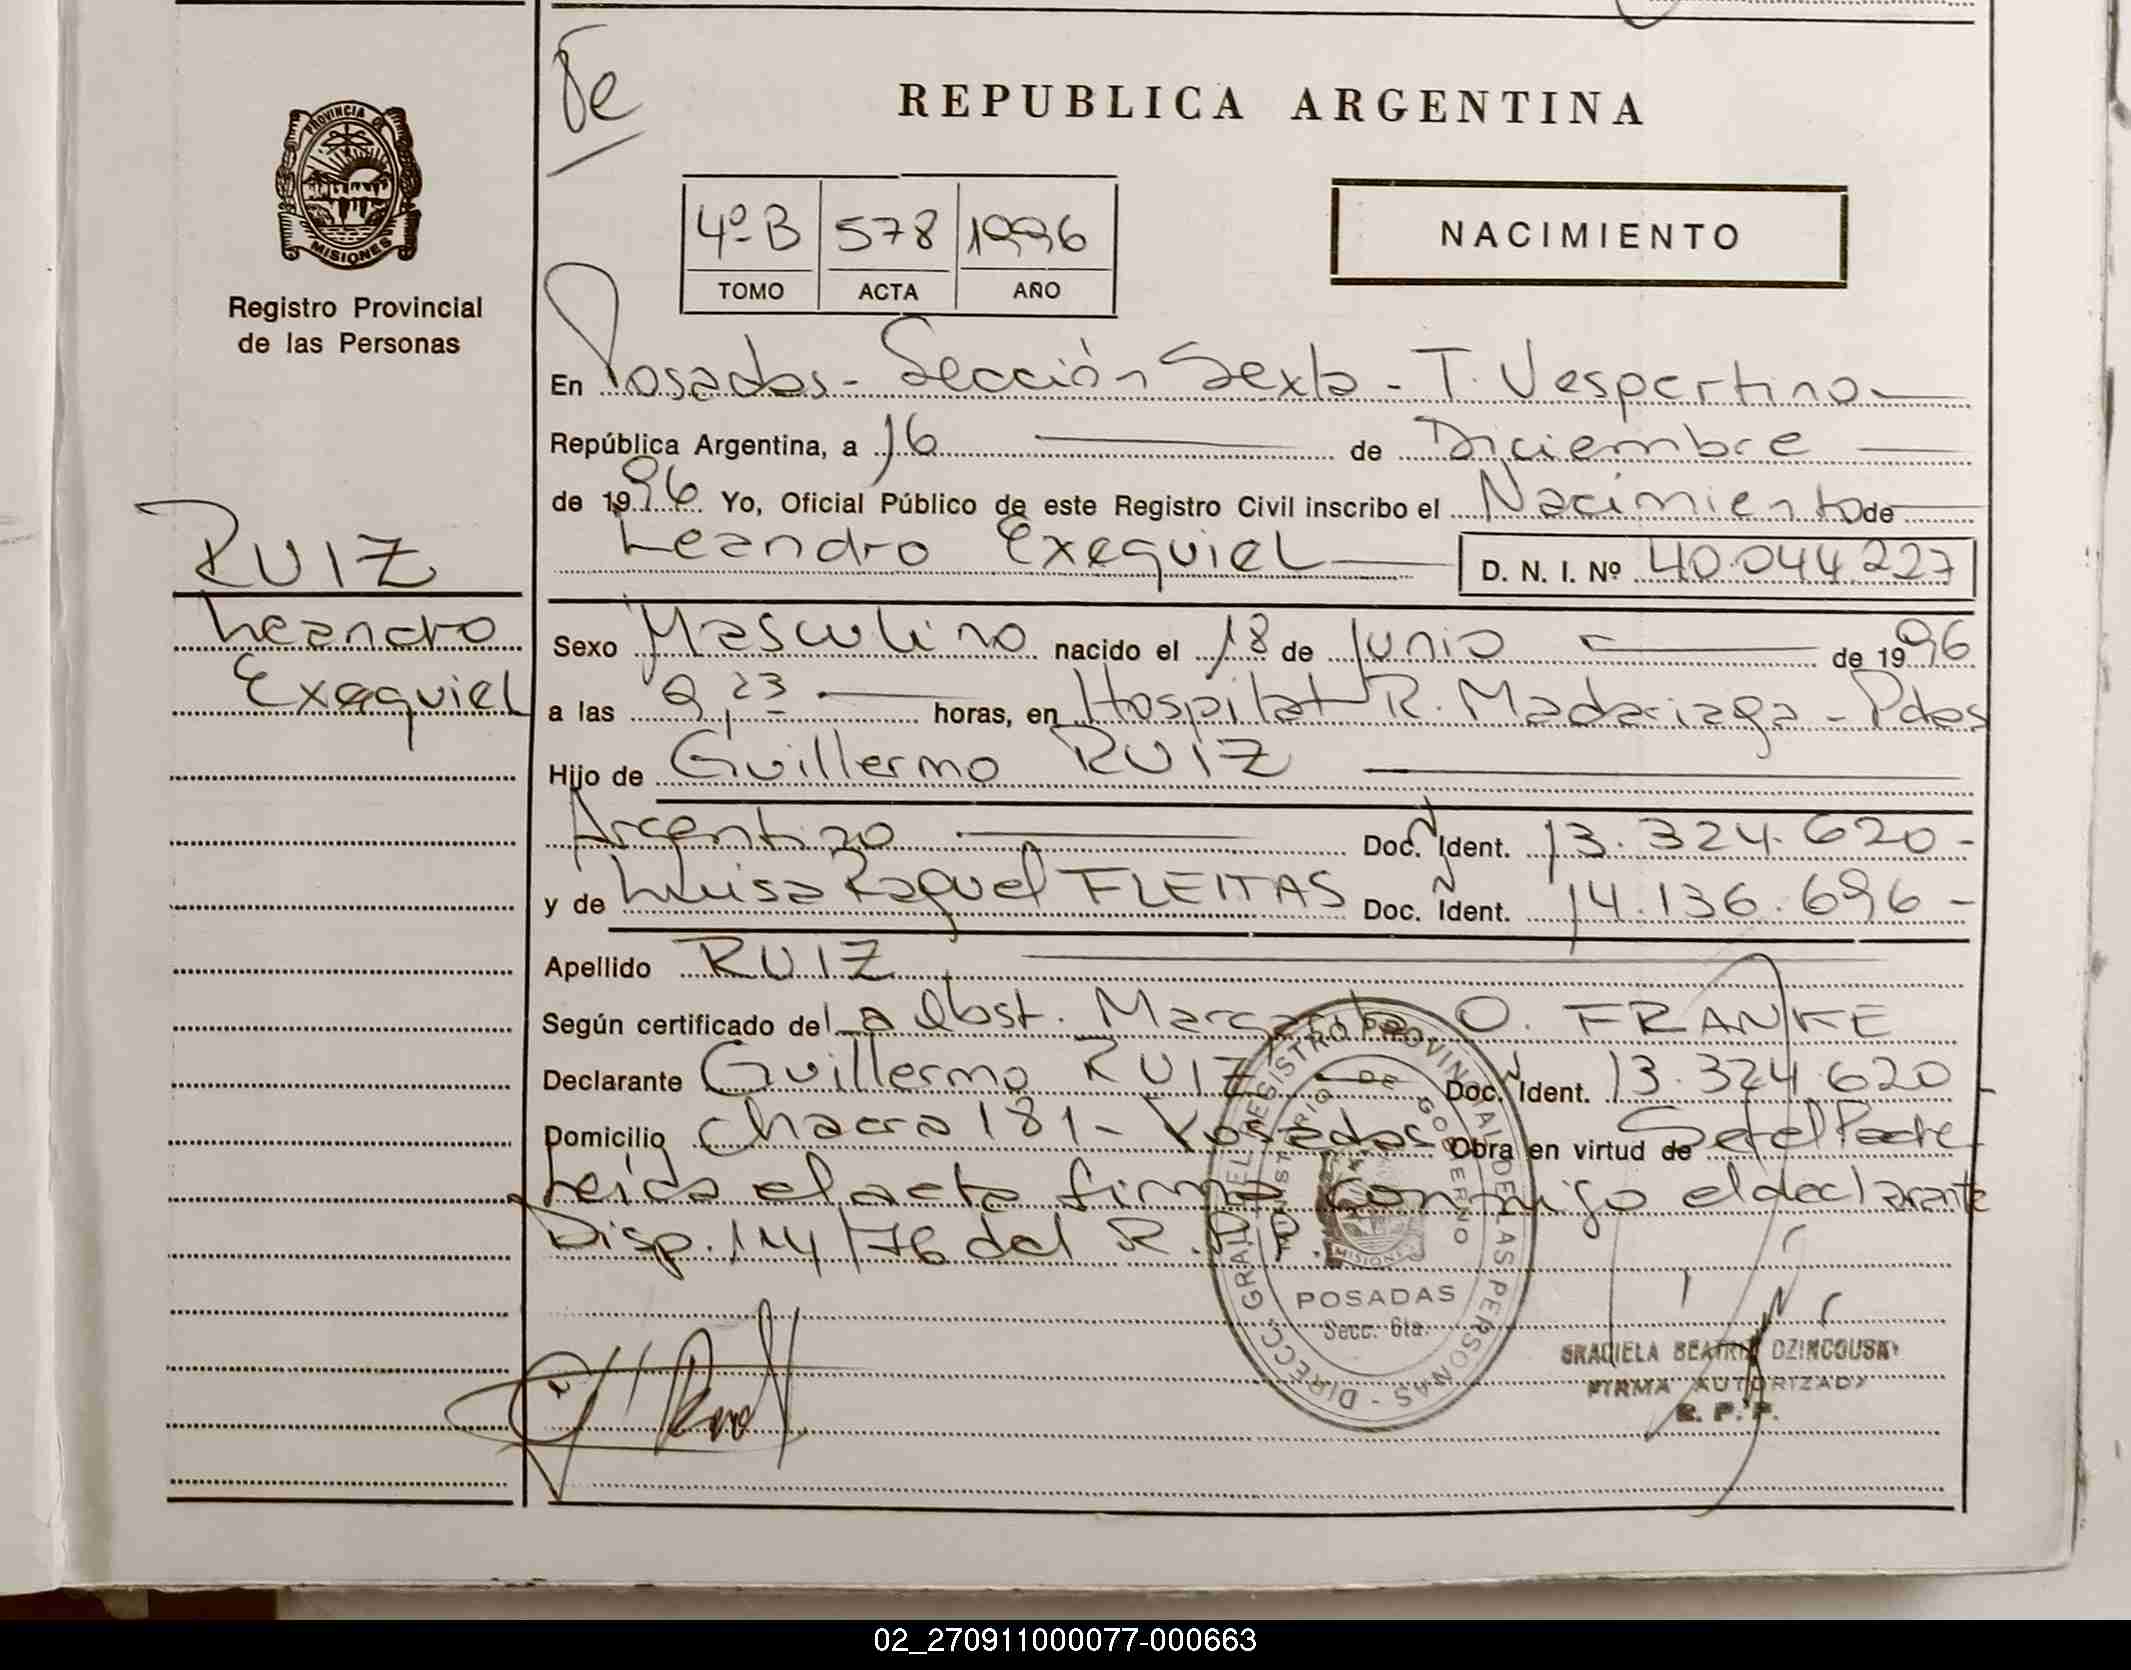 Je
REPUBLICA ARGENTINA
PROVINCIA DE
MISIONES
Registro Provincial
de las Personas
4º B 578 1996
TOMO ACTA AÑO
NACIMIENTO
En Posadas - Sección Sexta - T. Vespertino
República Argentina, a 16 de Diciembre
de 1996 Yo, Oficial Público de este Registro Civil inscribo el Nacimiento de
Leandro Exequiel D. N. I. Nº 40.044.227
RUIZ
Leandro
Exequiel
Sexo Masculino nacido el 18 de Junio de 1996
a las 9,23 horas, en Hospital R. Madariaga - Pdas
Hijo de Guillermo RUIZ
Argentino Doc. Ident. 13.324.620-
y de Luisa Raquel FLEITAS Doc. Ident. 14.136.696-
Apellido RUIZ
Según certificado de la Obst. Margarita O. FRANKE
Declarante Guillermo RUIZ Doc. Ident. 13.324.620
Domicilio chacra 181 - Posadas Obra en virtud de
Leida el acta firma conmigo el declarante
Disp. 114/76 del R.P.P.
DIRECC. GRAL DEL REGISTRO PROVINCIAL DE LAS PERSONAS -
MINISTERIO DE GOBIERNO
MISIONES
POSADAS
Secc. 6ta.
GRACIELA BEATRIZ
FIRMA AUTORIZADA
R. P. P.
02_270911000077-000663